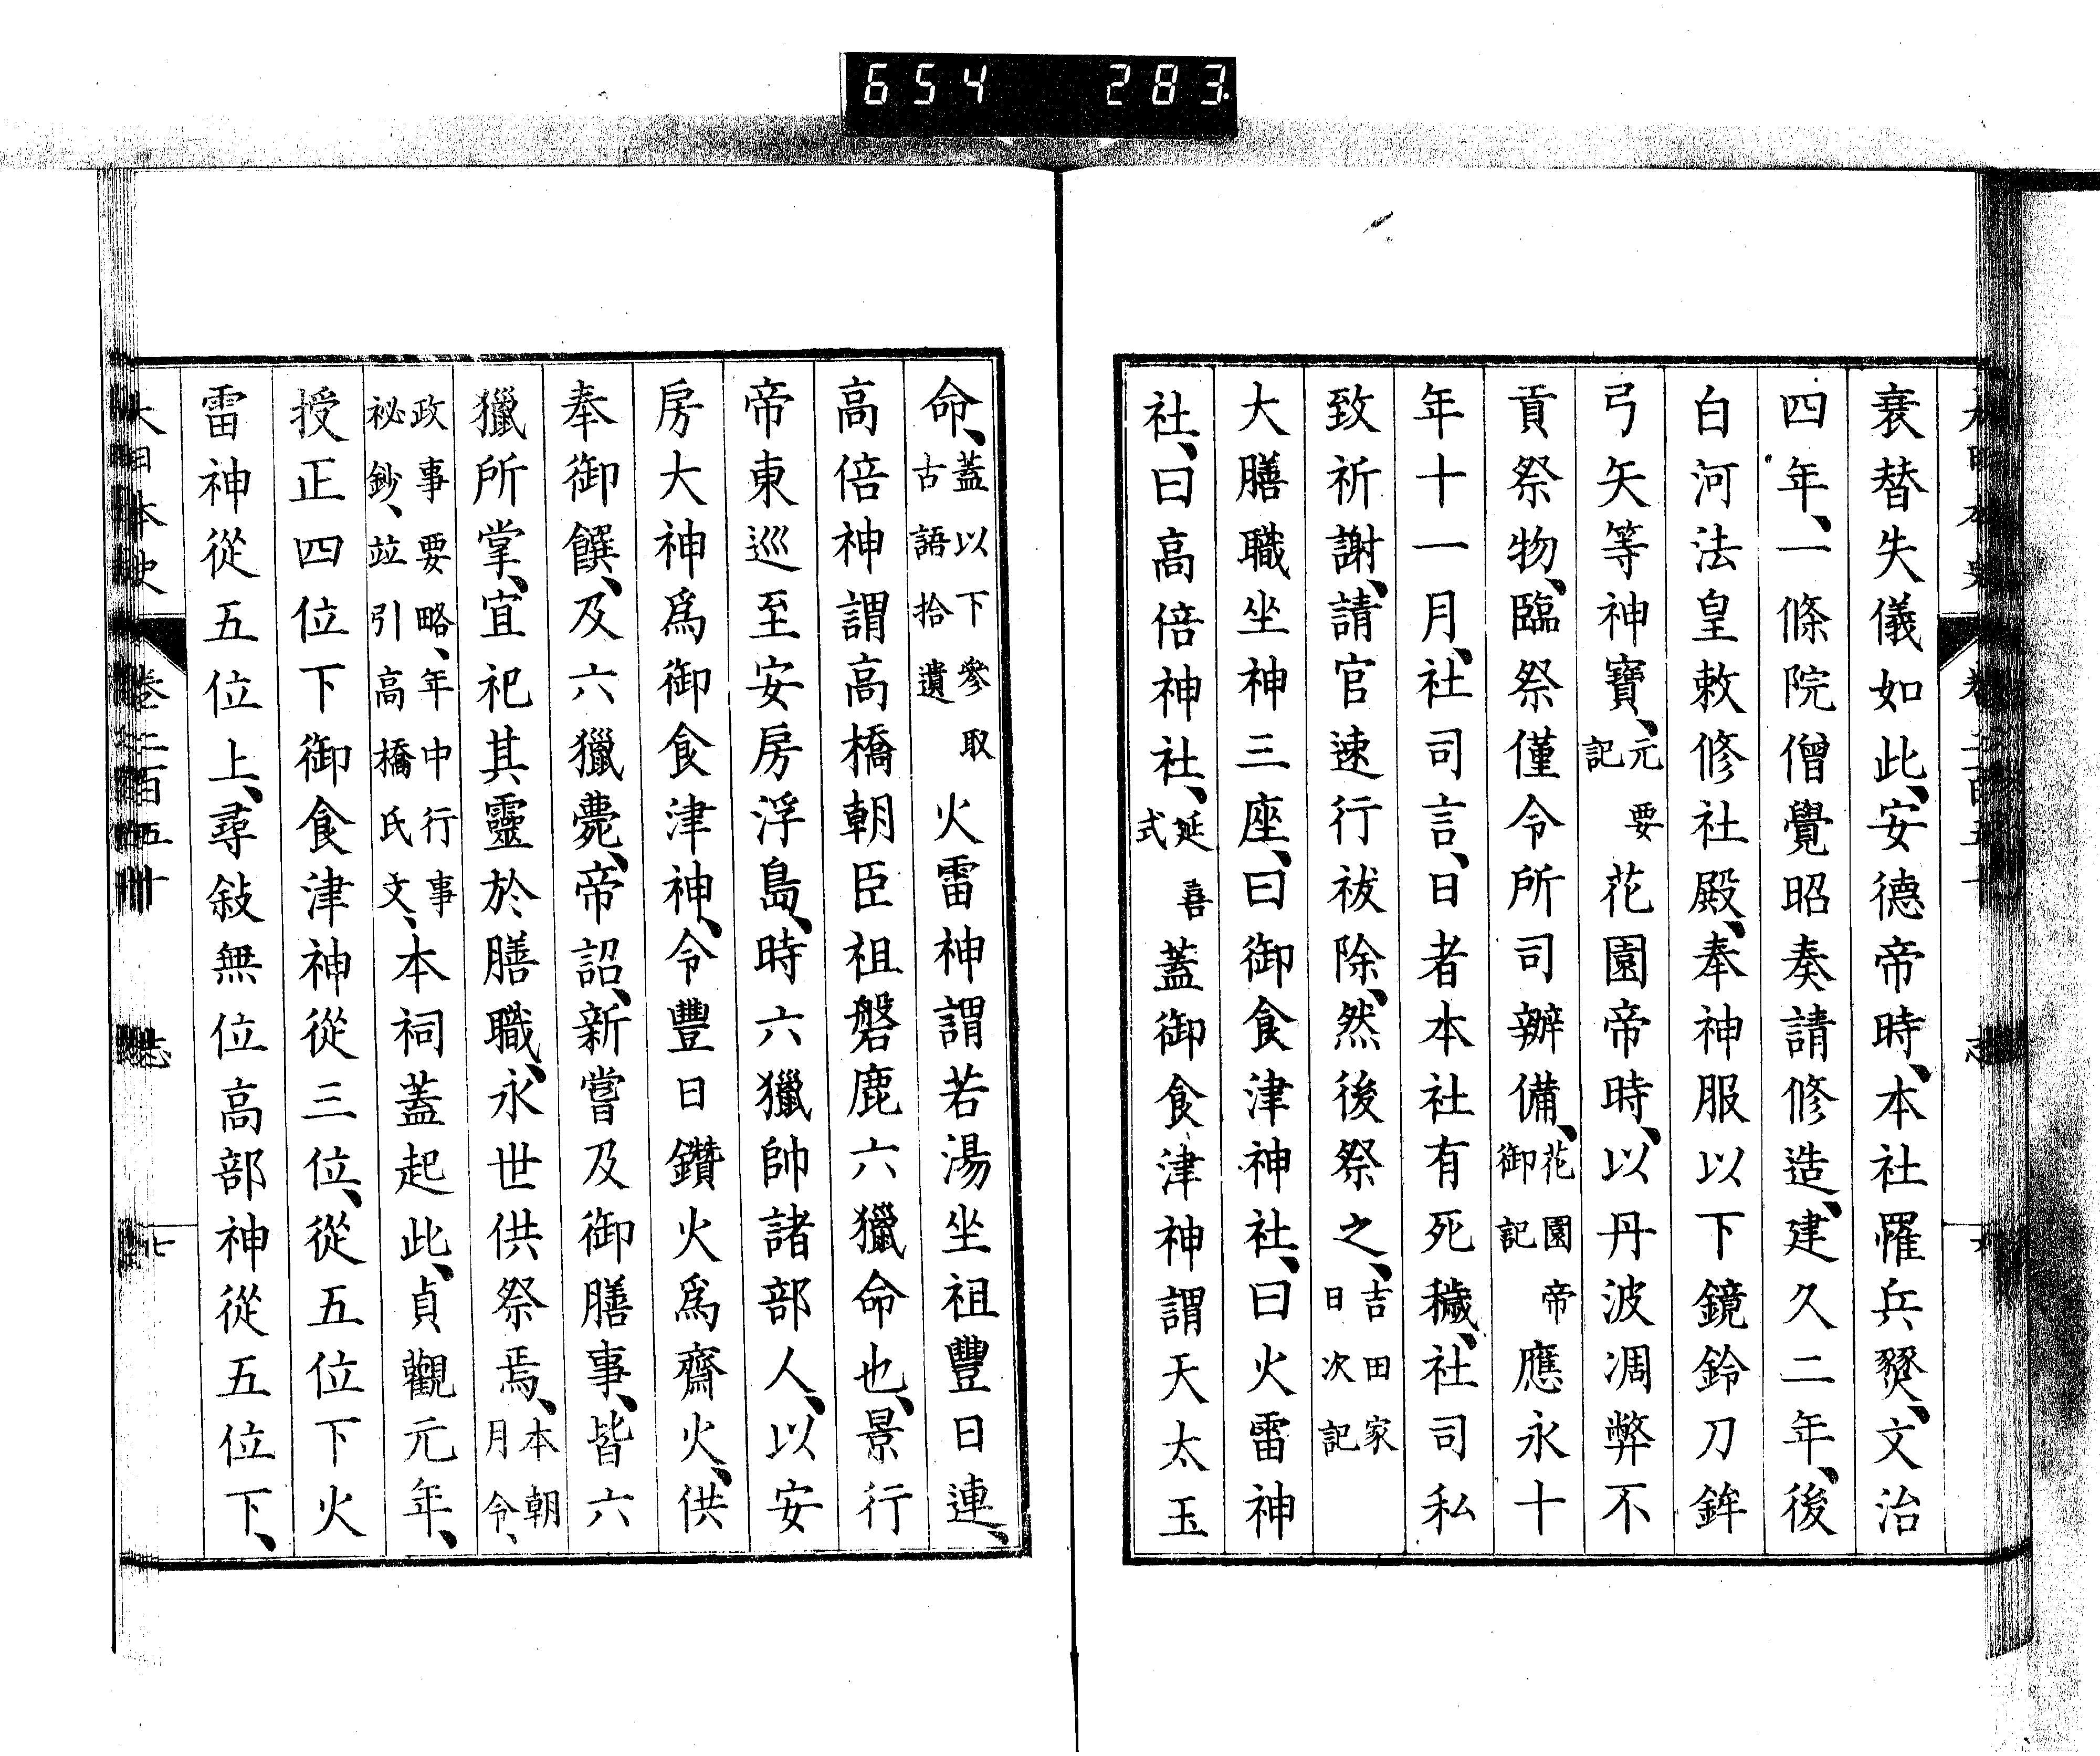 654 283
衰替失儀如此、安德帝時、本社罹兵燹、文治
四年、一條院僧覺昭奏請修造、建久二年、後
白河法皇敕修社殿、奉神服以下鏡鈴刀鉾
弓矢等神寶、元要記花園帝時、以丹波凋弊不
貢祭物、臨祭僅令所司辦備、花園帝御記應永十
年十一月、社司言、日者本社有死穢、社司私
致祈謝、請官速行祓除、然後祭之、吉田家日次記
大膳職坐神三座、曰御食津神社、曰火雷神
社、曰高倍神社、延喜式蓋御食津神謂天太玉
命、蓋以下參取古語拾遺火雷神謂若湯坐祖豐日連、
高倍神謂高橋朝臣祖磐鹿六獵命也、景行
帝東巡至安房浮島、時六獵帥諸部人、以安
房大神爲御食津神、令豐日鑽火爲齋火、供
奉御饌、及六獵薨、帝詔、新嘗及御膳事、皆六
獵所掌、宜祀其靈於膳職、永世供祭焉、本朝月令、
政事要略、年中行事祕鈔、竝引高橋氏文、本祠蓋起此、貞觀元年、
授正四位下御食津神從三位、從五位下火
雷神從五位上、尋敍無位高部神從五位下、
大日本史 卷二百五十 志 七